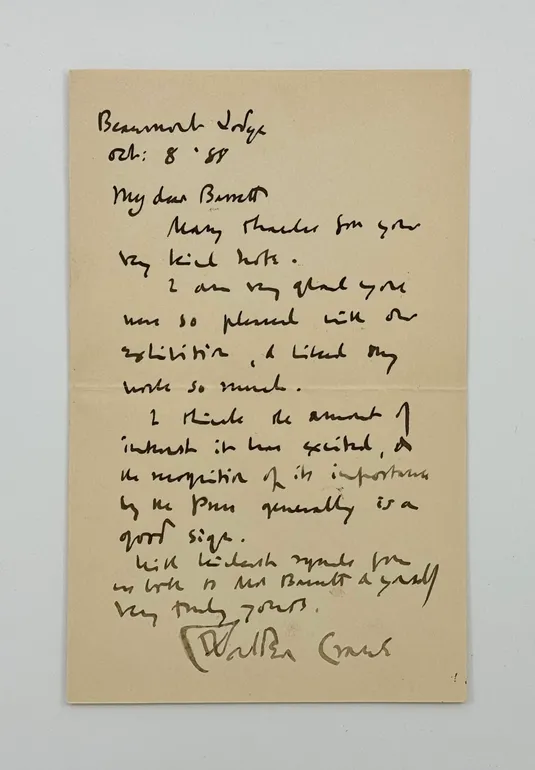 Beaumont Lodge
Oct: 8 '88
My dear Barrett
Many thanks for your
very kind note.
I am very glad you
were so pleased with our
exhibition, & liked my
work so much.
I think the amount of
interest it has excited, &
the recognition of its importance
by the Press generally is a
good sign.
With kindest regards from
us both to Mrs Barrett & yourself
very truly yours.
Walter Crane